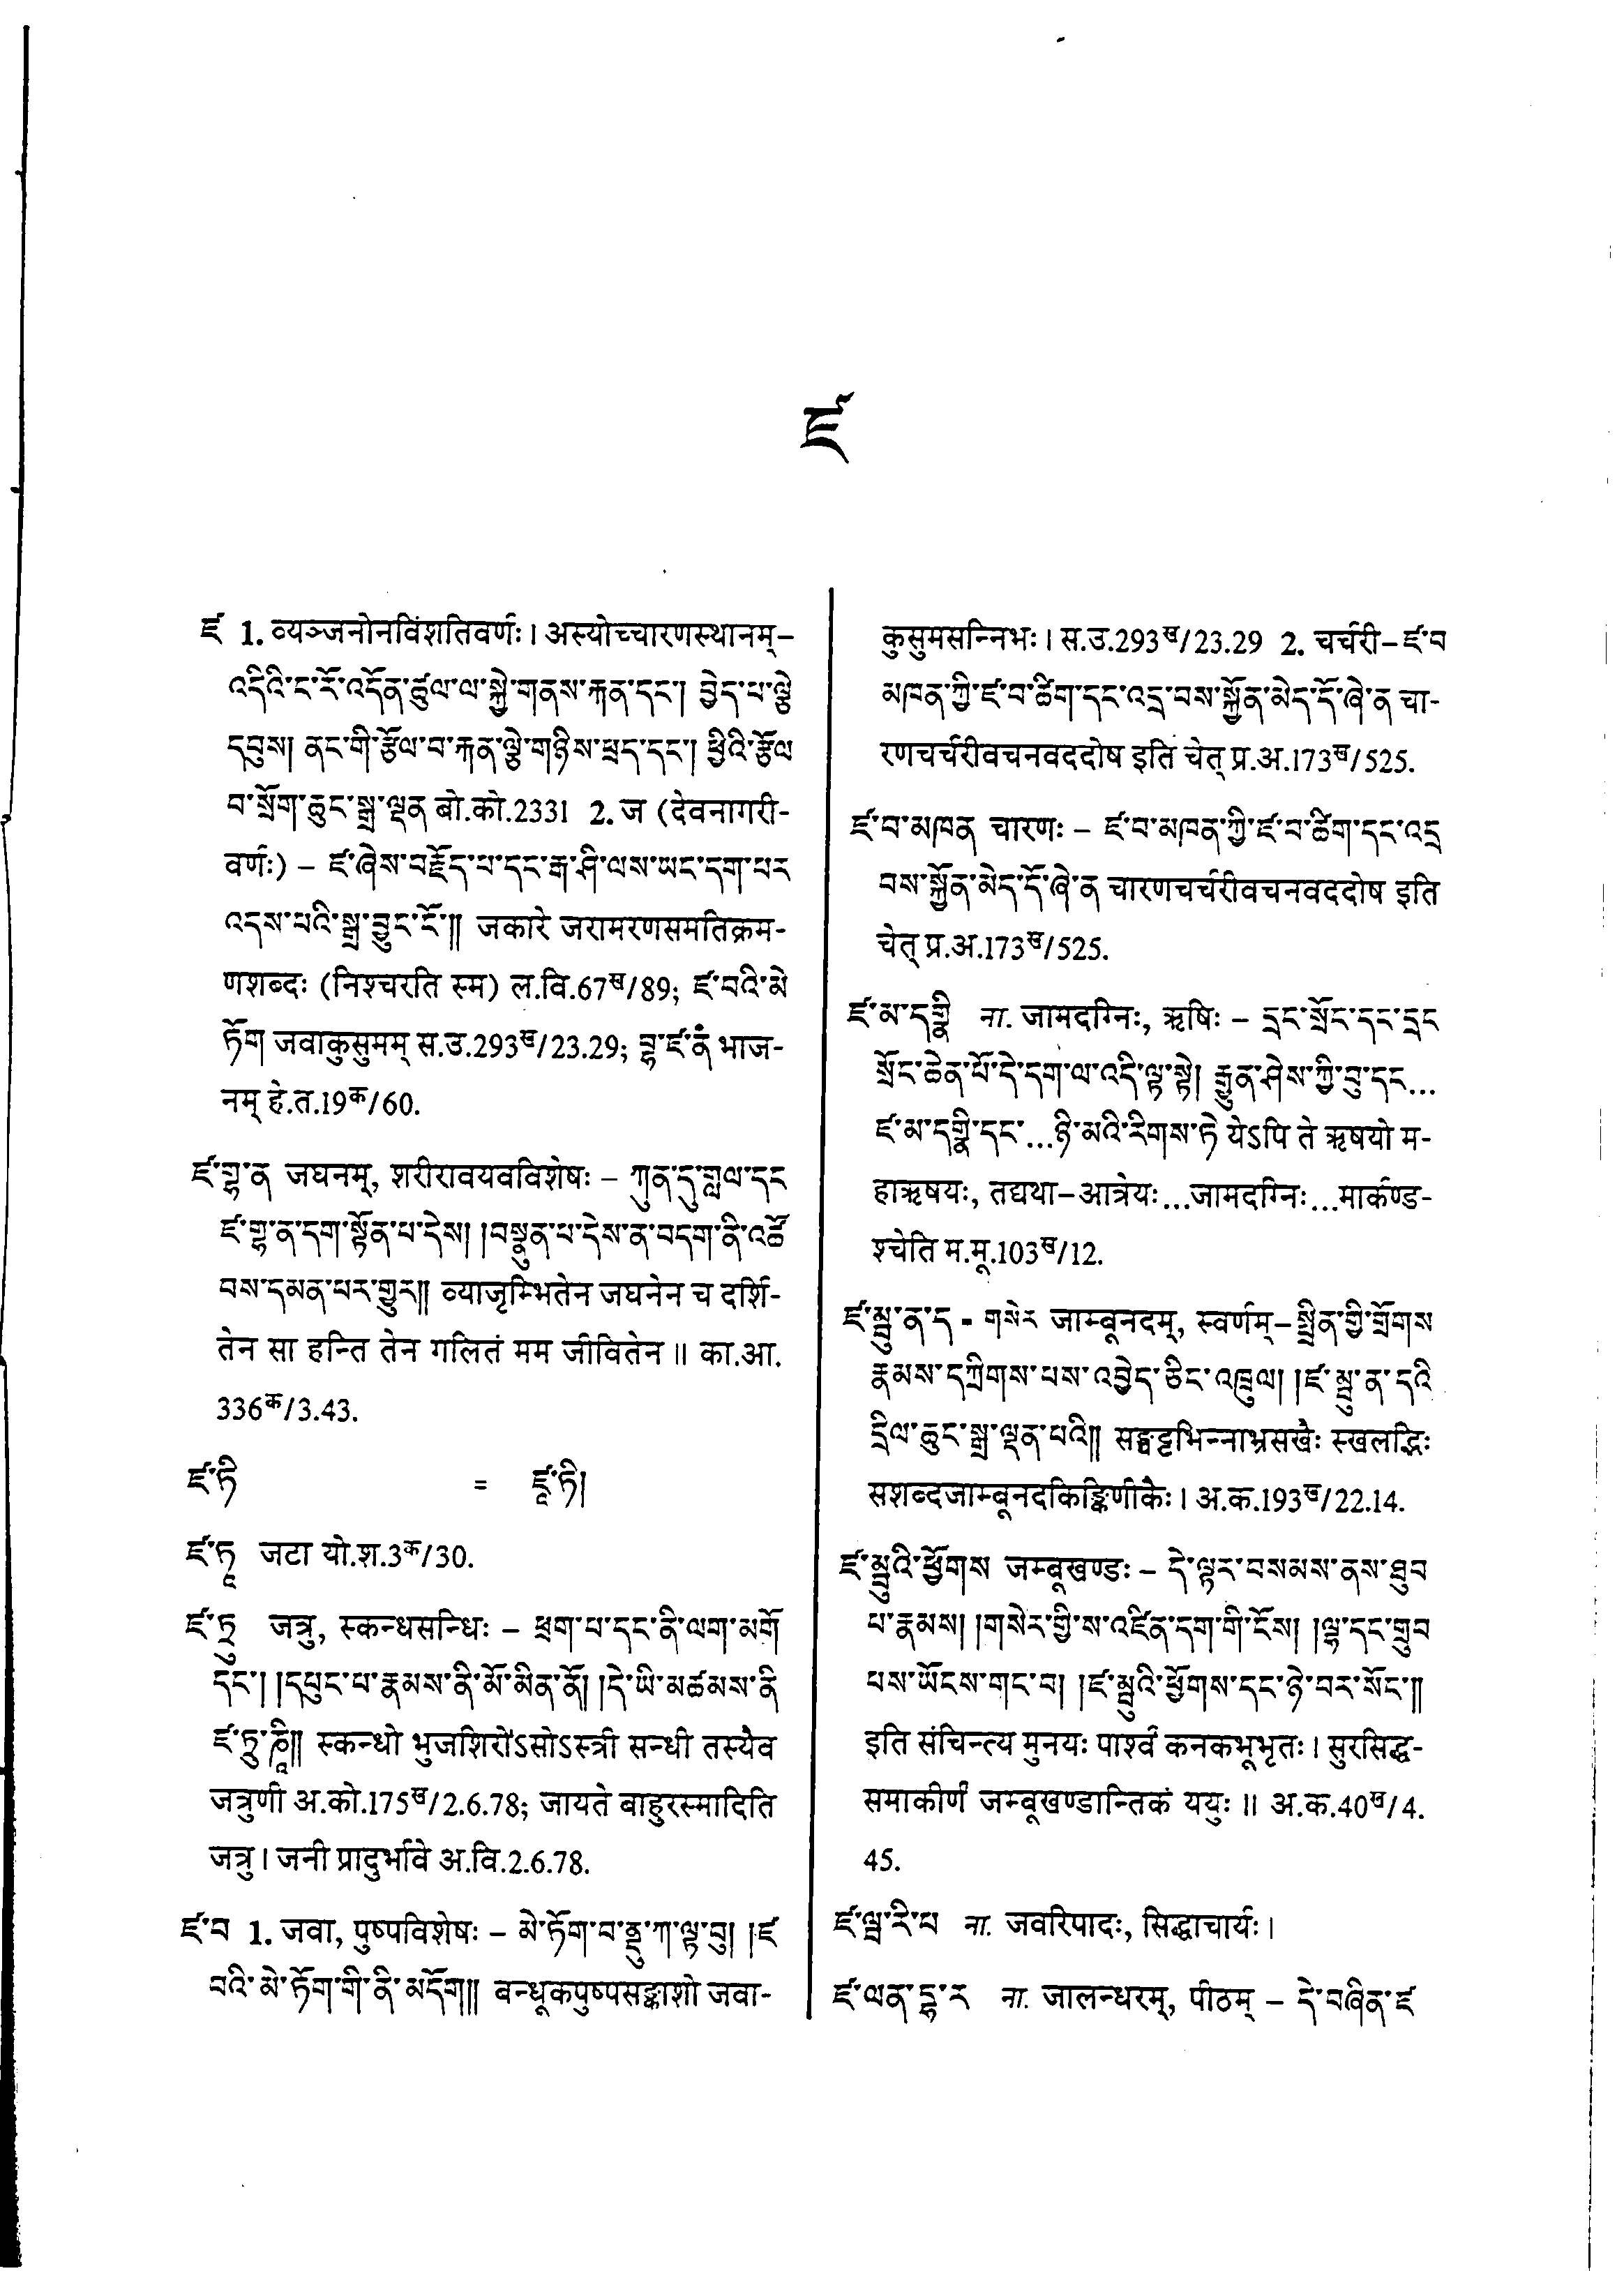 ཛ
ཛ 1. व्यञ्जनोनविंशतिवर्णः। अस्योच्चारणस्थानम्–
འདིའི་ང་རོ་འདོན་ཚུལ་ལ་སྐྱེ་གནས་རྐན་དང་། བྱེད་པ་ལྕེ
དབུས། ནང་གི་རྩོལ་བ་རྐན་ལྕེ་གཉིས་ཕྲད་དང་། ཕྱིའི་རྩོལ
བ་སྲོག་ཆུང་སྒྲ་ལྡན बो.को.2331 2. ज (देवनागरी-
वर्णः) – ཛ་ཞེས་བརྗོད་པ་དང་རྒ་ཤི་ལས་ཡང་དག་པར
འདས་པའི་སྒྲ་བྱུང་ངོ་༎ जकारे जरामरणसमतिक्रम-
णशब्दः (निश्चरति स्म) ल.वि.67ख/89; ཛ་བའི་མེ
ཏོག जवाकुसुमम् स.उ.293ख/23.29; བྷ་ཛ་ནཾ भाज-
नम् हे.त.19क/60.
ཛ་གྷ་ན जघनम्, शरीरावयवविशेषः – ཀུན་ཏུ་གླལ་དང
ཛ་གྷ་ན་དག་སྟོན་པ་དེས། །བསྣུན་པ་དེས་ན་བདག་ནི་འཚོ
བས་དམན་པར་གྱུར༎ व्याजृम्भितेन जघनेन च दर्शि-
तेन सा हन्ति तेन गलितं मम जीवितेन ॥ का.आ.
336क/3.43.
ཛ་ཏི = ཛཱ་ཏི།
ཛ་ཏཱ जटा यो.श.3क/30.
ཛ་ཏྲུ जत्रु, स्कन्धसन्धिः – ཕྲག་པ་དང་ནི་ལག་མགོ
དང་། །དཔུང་པ་རྣམས་ནི་མོ་མིན་ནོ། །དེ་ཡི་མཚམས་ནི
ཛ་ཏྲུ་ཎཱི༎ स्कन्धो भुजशिरोंऽसोऽस्त्री सन्धी तस्यैव
जत्रुणी अ.को.175ख/2.6.78; जायते बाहुरस्मादिति
जत्रु। जनी प्रादुर्भावे अ.वि.2.6.78.
ཛ་བ 1. जवा, पुष्पविशेषः – མེ་ཏོག་བ་ནྡྷུ་ཀ་ལྟ་བུ། །ཛ
བའི་མེ་ཏོག་གི་ནི་མདོག༎ बन्धूकपुष्पसङ्काशो जवा-
कुसुमसन्निभः। स.उ.293ख/23.29 2. चर्चरी–ཛ་བ
མཁན་ཀྱི་ཛ་བ་ཚིག་དང་འདྲ་བས་སྐྱོན་མེད་དོ་ཞེ་ན चा-
रणचर्चरीवचनवददोष इति चेत् प्र.अ.173ख/525.
ཛ་བ་མཁན चारणः – ཛ་བ་མཁན་ཀྱི་ཛ་བ་ཚིག་དང་འདྲ
བས་སྐྱོན་མེད་དོ་ཞེ་ན चारणचर्चरीवचनवददोष इति
चेत् प्र.अ.173ख/525.
ཛ་མ་དགྣི ना. जामदग्निः, ऋषिः – དྲང་སྲོང་དང་དྲང
སྲོང་ཆེན་པོ་དེ་དག་ལ་འདི་ལྟ་སྟེ། རྒྱུན་ཤེས་ཀྱི་བུ་དང...
ཛ་མ་དགྣི་དང་...ཉི་མའི་རིགས་ཏེ येऽपि ते ऋषयो म-
हाऋषयः, तद्यथा–आत्रेयः...जामदग्निः...मार्कण्ड-
श्चेति म.मू.103ख/12.
ཛ་མྦུ་ན་ད - གསེར जाम्बूनदम्, स्वर्णम्–སྤྲིན་གྱི་གྲོགས
རྣམས་དཀྲིགས་པས་འབྱེད་ཅིང་འཁྲུལ། །ཛ་མྦུ་ན་དའི
དྲིལ་ཆུང་སྒྲ་ལྡན་པའི༎ सङ्घट्टभिन्नाभ्रसखैः स्खलद्भिः
सशब्दजाम्बूनदकिङ्किणीकैः। अ.क.193ख/22.14.
ཛ་མྦུའི་ཕྱོགས जम्बूखण्डः – དེ་ལྟར་བསམས་ནས་ཐུབ
པ་རྣམས། །གསེར་གྱི་ས་འཛིན་དག་གི་ངོས། །ལྷ་དང་གྲུབ
པས་ཡོངས་གང་བ། །ཛ་མྦུའི་ཕྱོགས་དང་ཉེ་བར་སོང་༎
इति संचिन्त्य मुनयः पार्श्वं कनकभूभृतः। सुरसिद्ध-
समाकीर्णं जम्बूखण्डान्तिकं ययुः॥ अ.क.40ख/4.
45.
ཛ་ལྦ་རི་པ ना. जवरिपादः, सिद्धाचार्यः।
ཛ་ལན་དྷ་ར ना. जालन्धरम्, पीठम् – དེ་བཞིན་ཛ